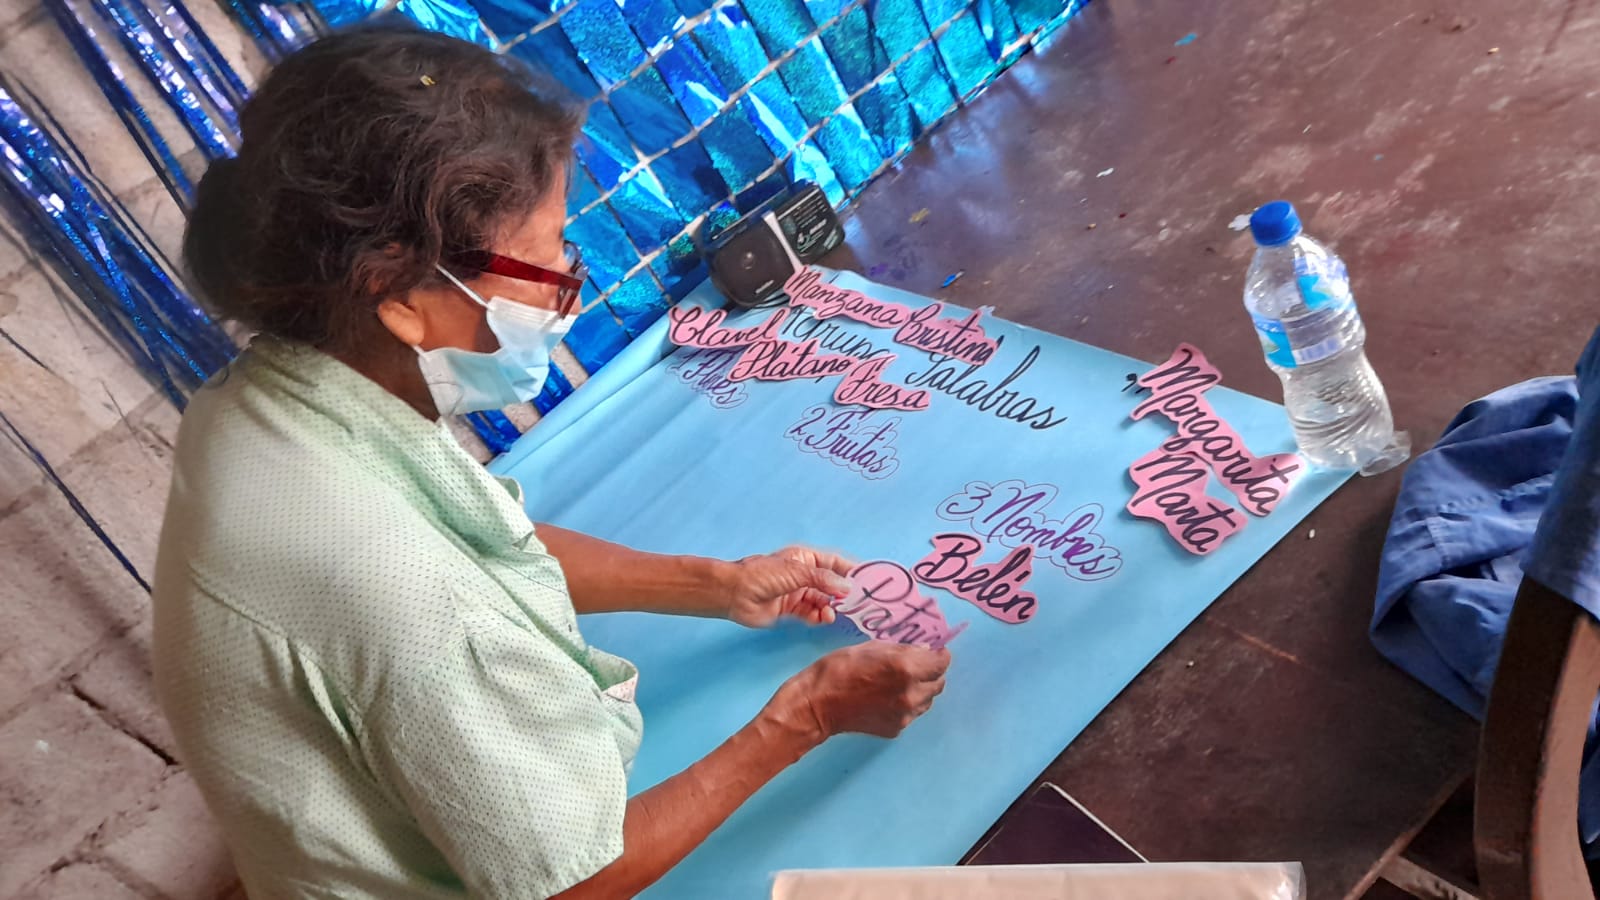 Manzana
Cristina
Clavel
Grupo
Palabras
Plátano
1 Flores
Fresa
2 Frutas
Margarita
Marta
3 Nombres
Belén